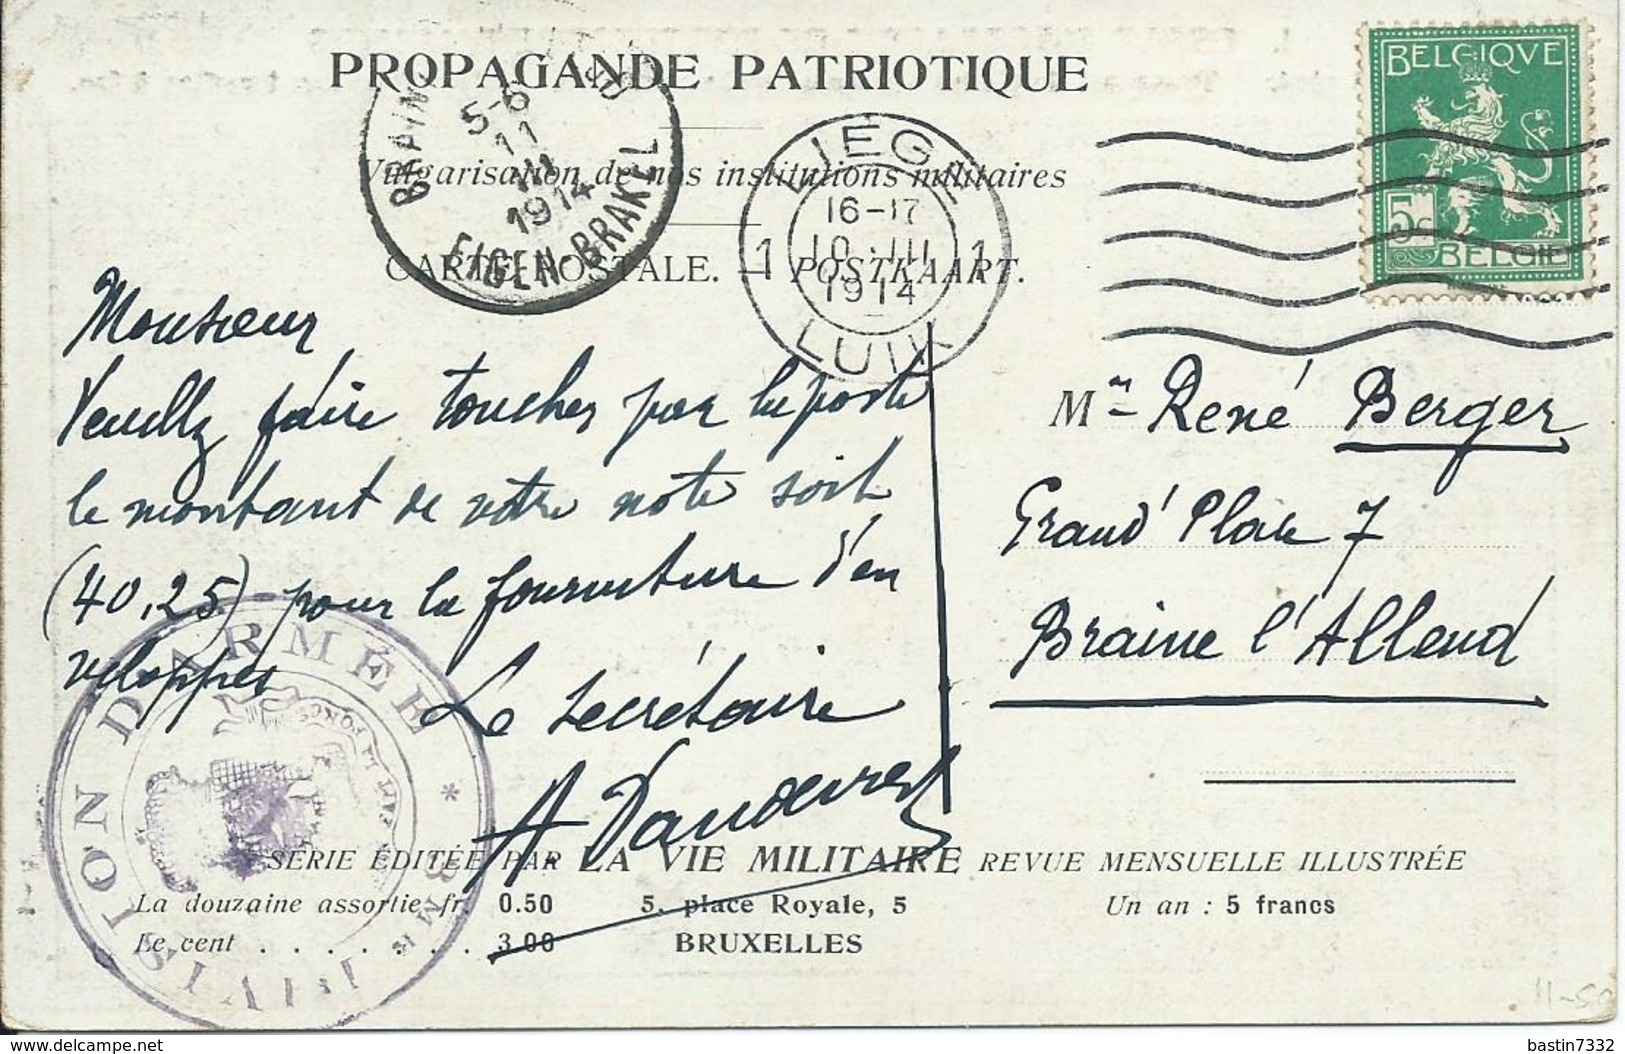 PROPAGANDE PATRIOTIQUE
Vulgarisation de nos institutions militaires
CARTE POSTALE. — POSTKAART.
5-6
11
III
1914
EIGEN-BRAKEL
LIÉGE
16-17
1 10·III 1
1914
LUIK
BELGIQVE
5c
BELGIE
Monsieur
Veuillz faire toucher par la poste
le montant de votre note soit
(40,25) pour la fourniture d'en
veloppes
Le secrétaire
Mr René Berger
Grand' Place 7
Braine l'Alleud
3me DIVISION D'ARMÉE *
SÉRIE ÉDITÉE PAR LA VIE MILITAIRE REVUE MENSUELLE ILLUSTRÉE
La douzaine assortie fr. 0.50 5, place Royale, 5 Un an : 5 francs
Le cent . . . . . . . 3.00 BRUXELLES
11-50
delcampe.net
bastin7332